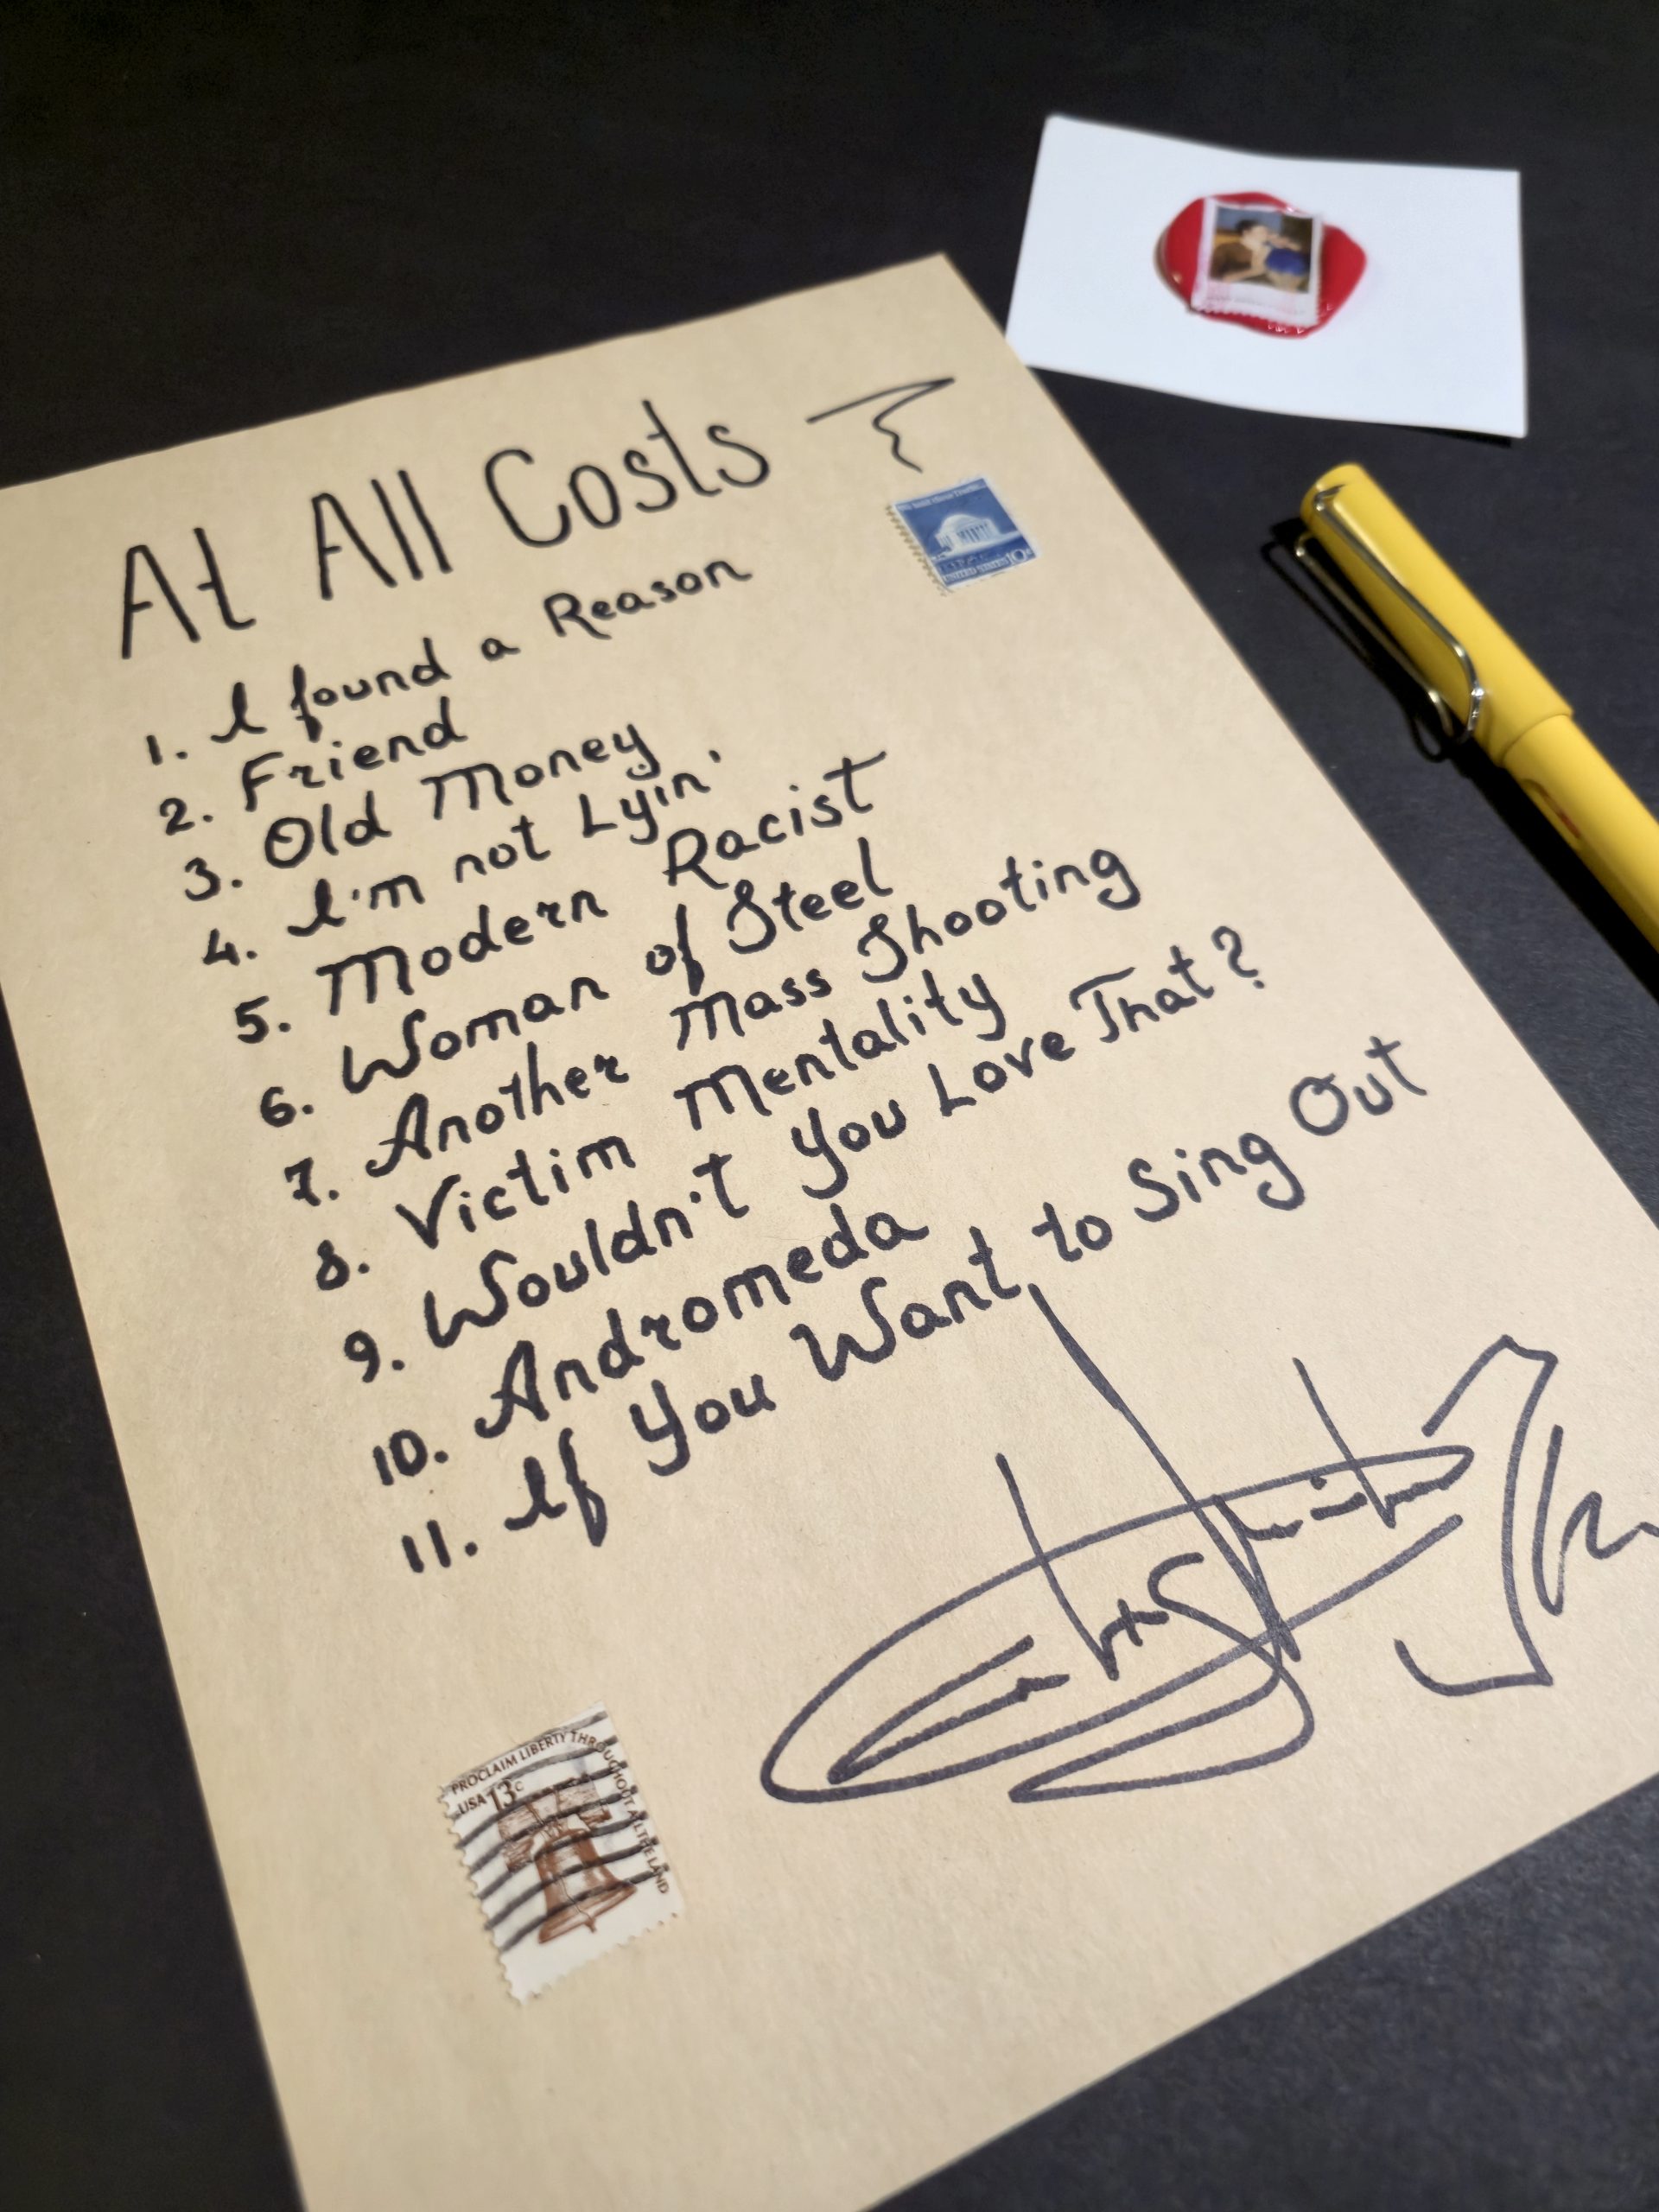 At All Costs
1. I found a Reason
2. Friend
3. Old Money
4. I'm not Lyin'
5. Modern Racist
6. Woman of Steel
7. Another Mass Shooting
8. Victim Mentality
9. Wouldn't You Love That?
10. Andromeda
11. If You Want to Sing Out
10c
UNITED STATES
PROCLAIM LIBERTY THROUGHOUT ALL THE LAND
USA 13c